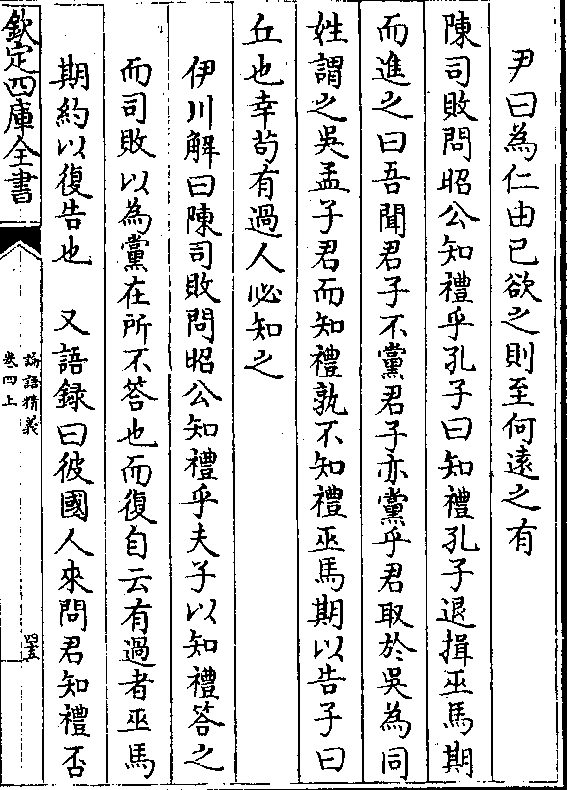 尹曰為仁由己欲之則至何遠之有
陳司敗問昭公知禮乎孔子曰知禮孔子退揖巫馬期
而進之曰吾聞君子不黨君子亦黨乎君取於吳為同
姓謂之吳孟子君而知禮孰不知禮巫馬期以告子曰
丘也幸苟有過人必知之
伊川解曰陳司敗問昭公知禮乎夫子以知禮答之
而司敗以為黨在所不答也而復自云有過者巫馬
期約以復告也 又語録曰彼國人來問君知禮否
欽定四庫全書
論語精義
卷四上